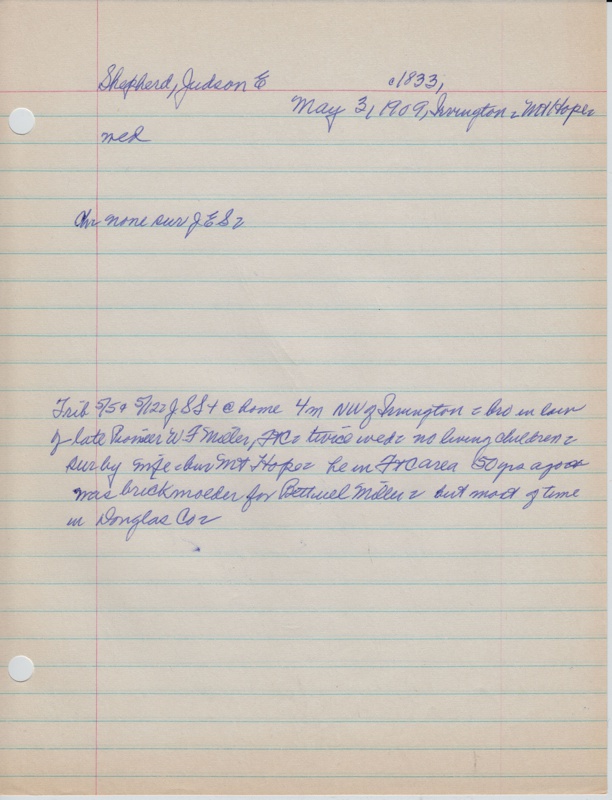 Shepherd, Judson E c1833,
May 3, 1909, Irvington - Mt Hope -
wed
Chr none sur J E S -
Trib 5/5 & 5/12 - J S S + @ home 4 m NW of Irvington - bro in law
of late Pioneer W F Miller, FtC - twice wed - no living children -
sur by wife - bur Mt Hope - he in FtC area 50 yrs ago
was brick molder for Bethuel Miller - but most of time
in Douglas Co -